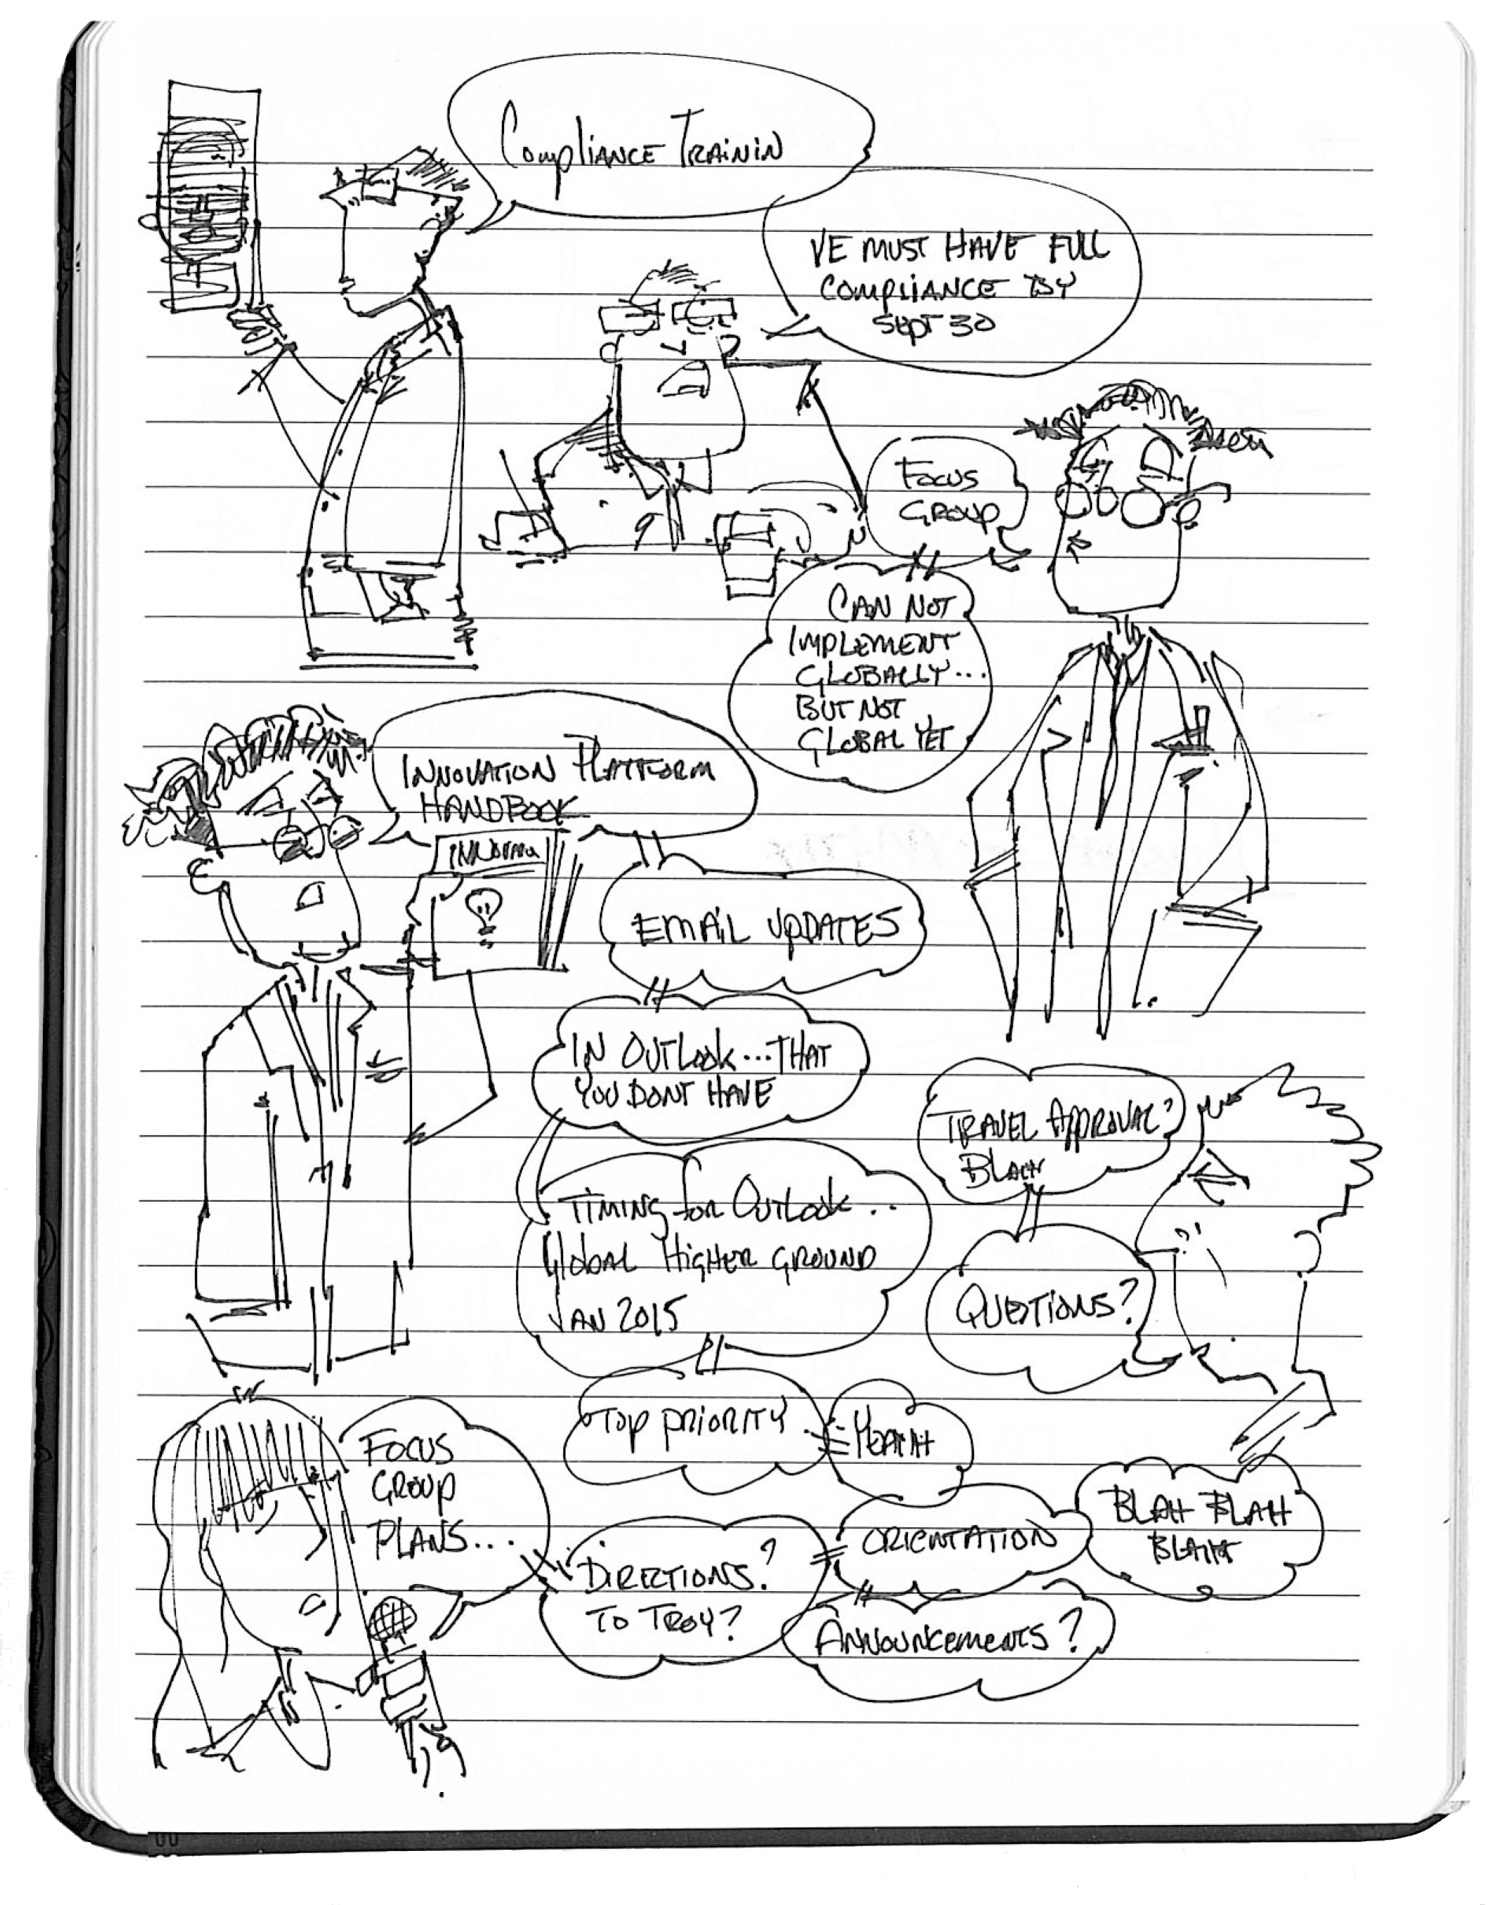 Compliance Trainin
VE MUST HAVE FULL
COMPLIANCE BY
SEPT 30
FOCUS
GROUP
CAN NOT
IMPLEMENT
GLOBALLY...
BUT NOT
GLOBAL YET
INNOVATION PLATFORM
HANDBOOK
EMAIL UPDATES
IN OUTLOOK...THAT
YOU DONT HAVE
TRAVEL APPROVAL?
BLAH
TIMING for OUTLOOK..
Global HIGHER GROUND
JAN 2015
QUESTIONS?
TOP PRIORITY
YEAH
FOCUS
GROUP
PLANS...
DIRECTIONS?
TO TROY?
ORIENTATION
BLAH BLAH
BLAH
ANNOUNCEMENTS?